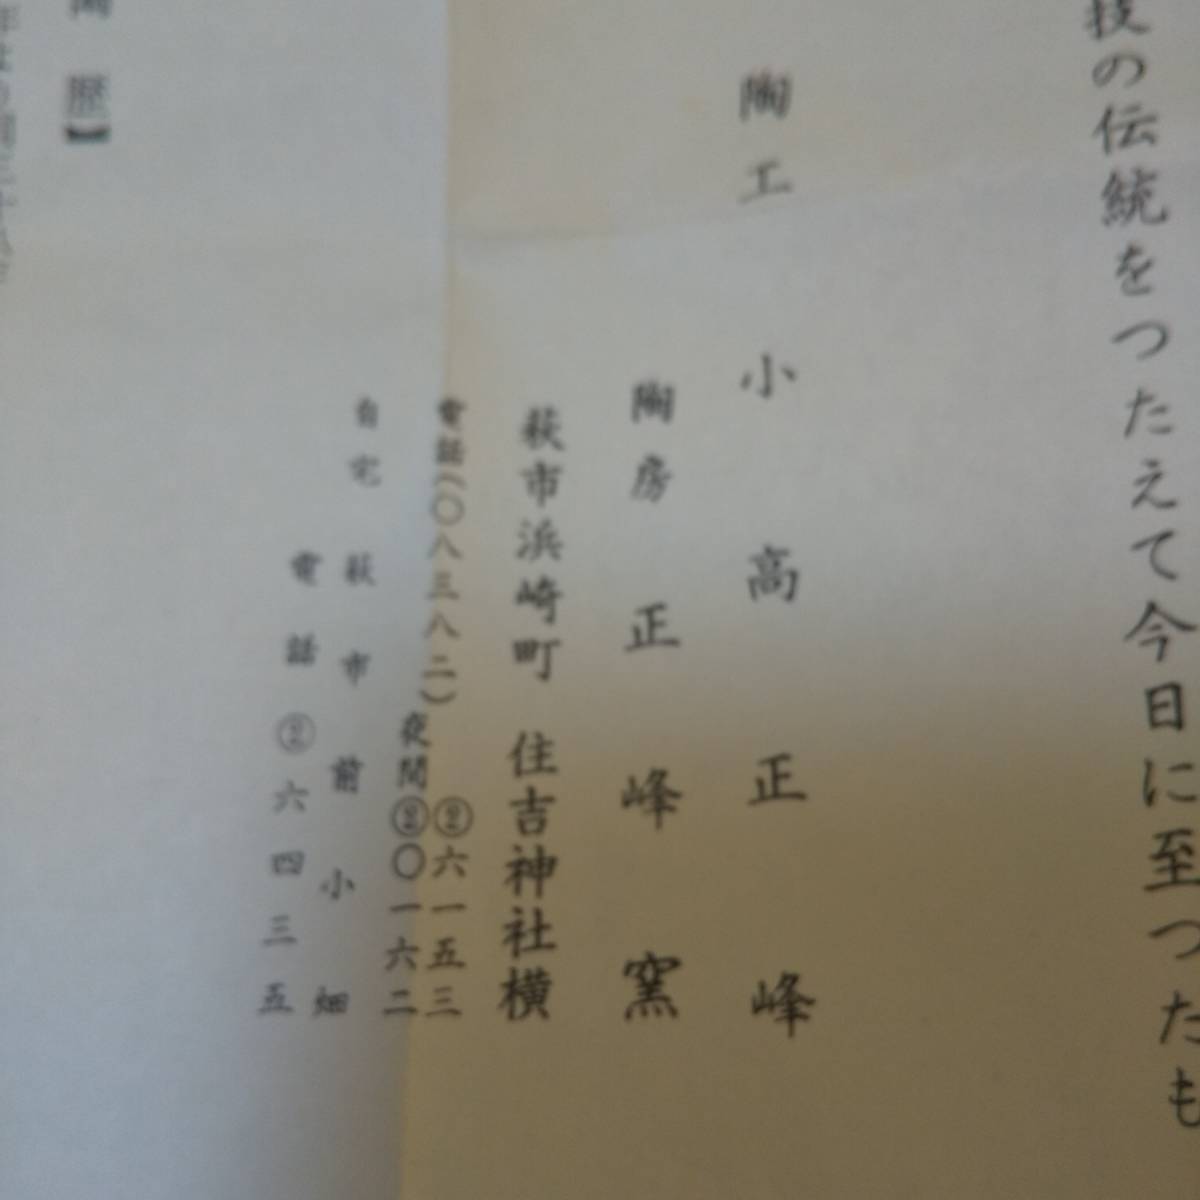 技の伝統をつたえて今日に至つたも
陶工 小高正峰
陶房 正峰窯
萩市浜崎町 住吉神社横
電話(〇八三八二)②六一五三
夜間②〇一六二
自宅 萩市前小畑
電話②六四三五
陶歴】